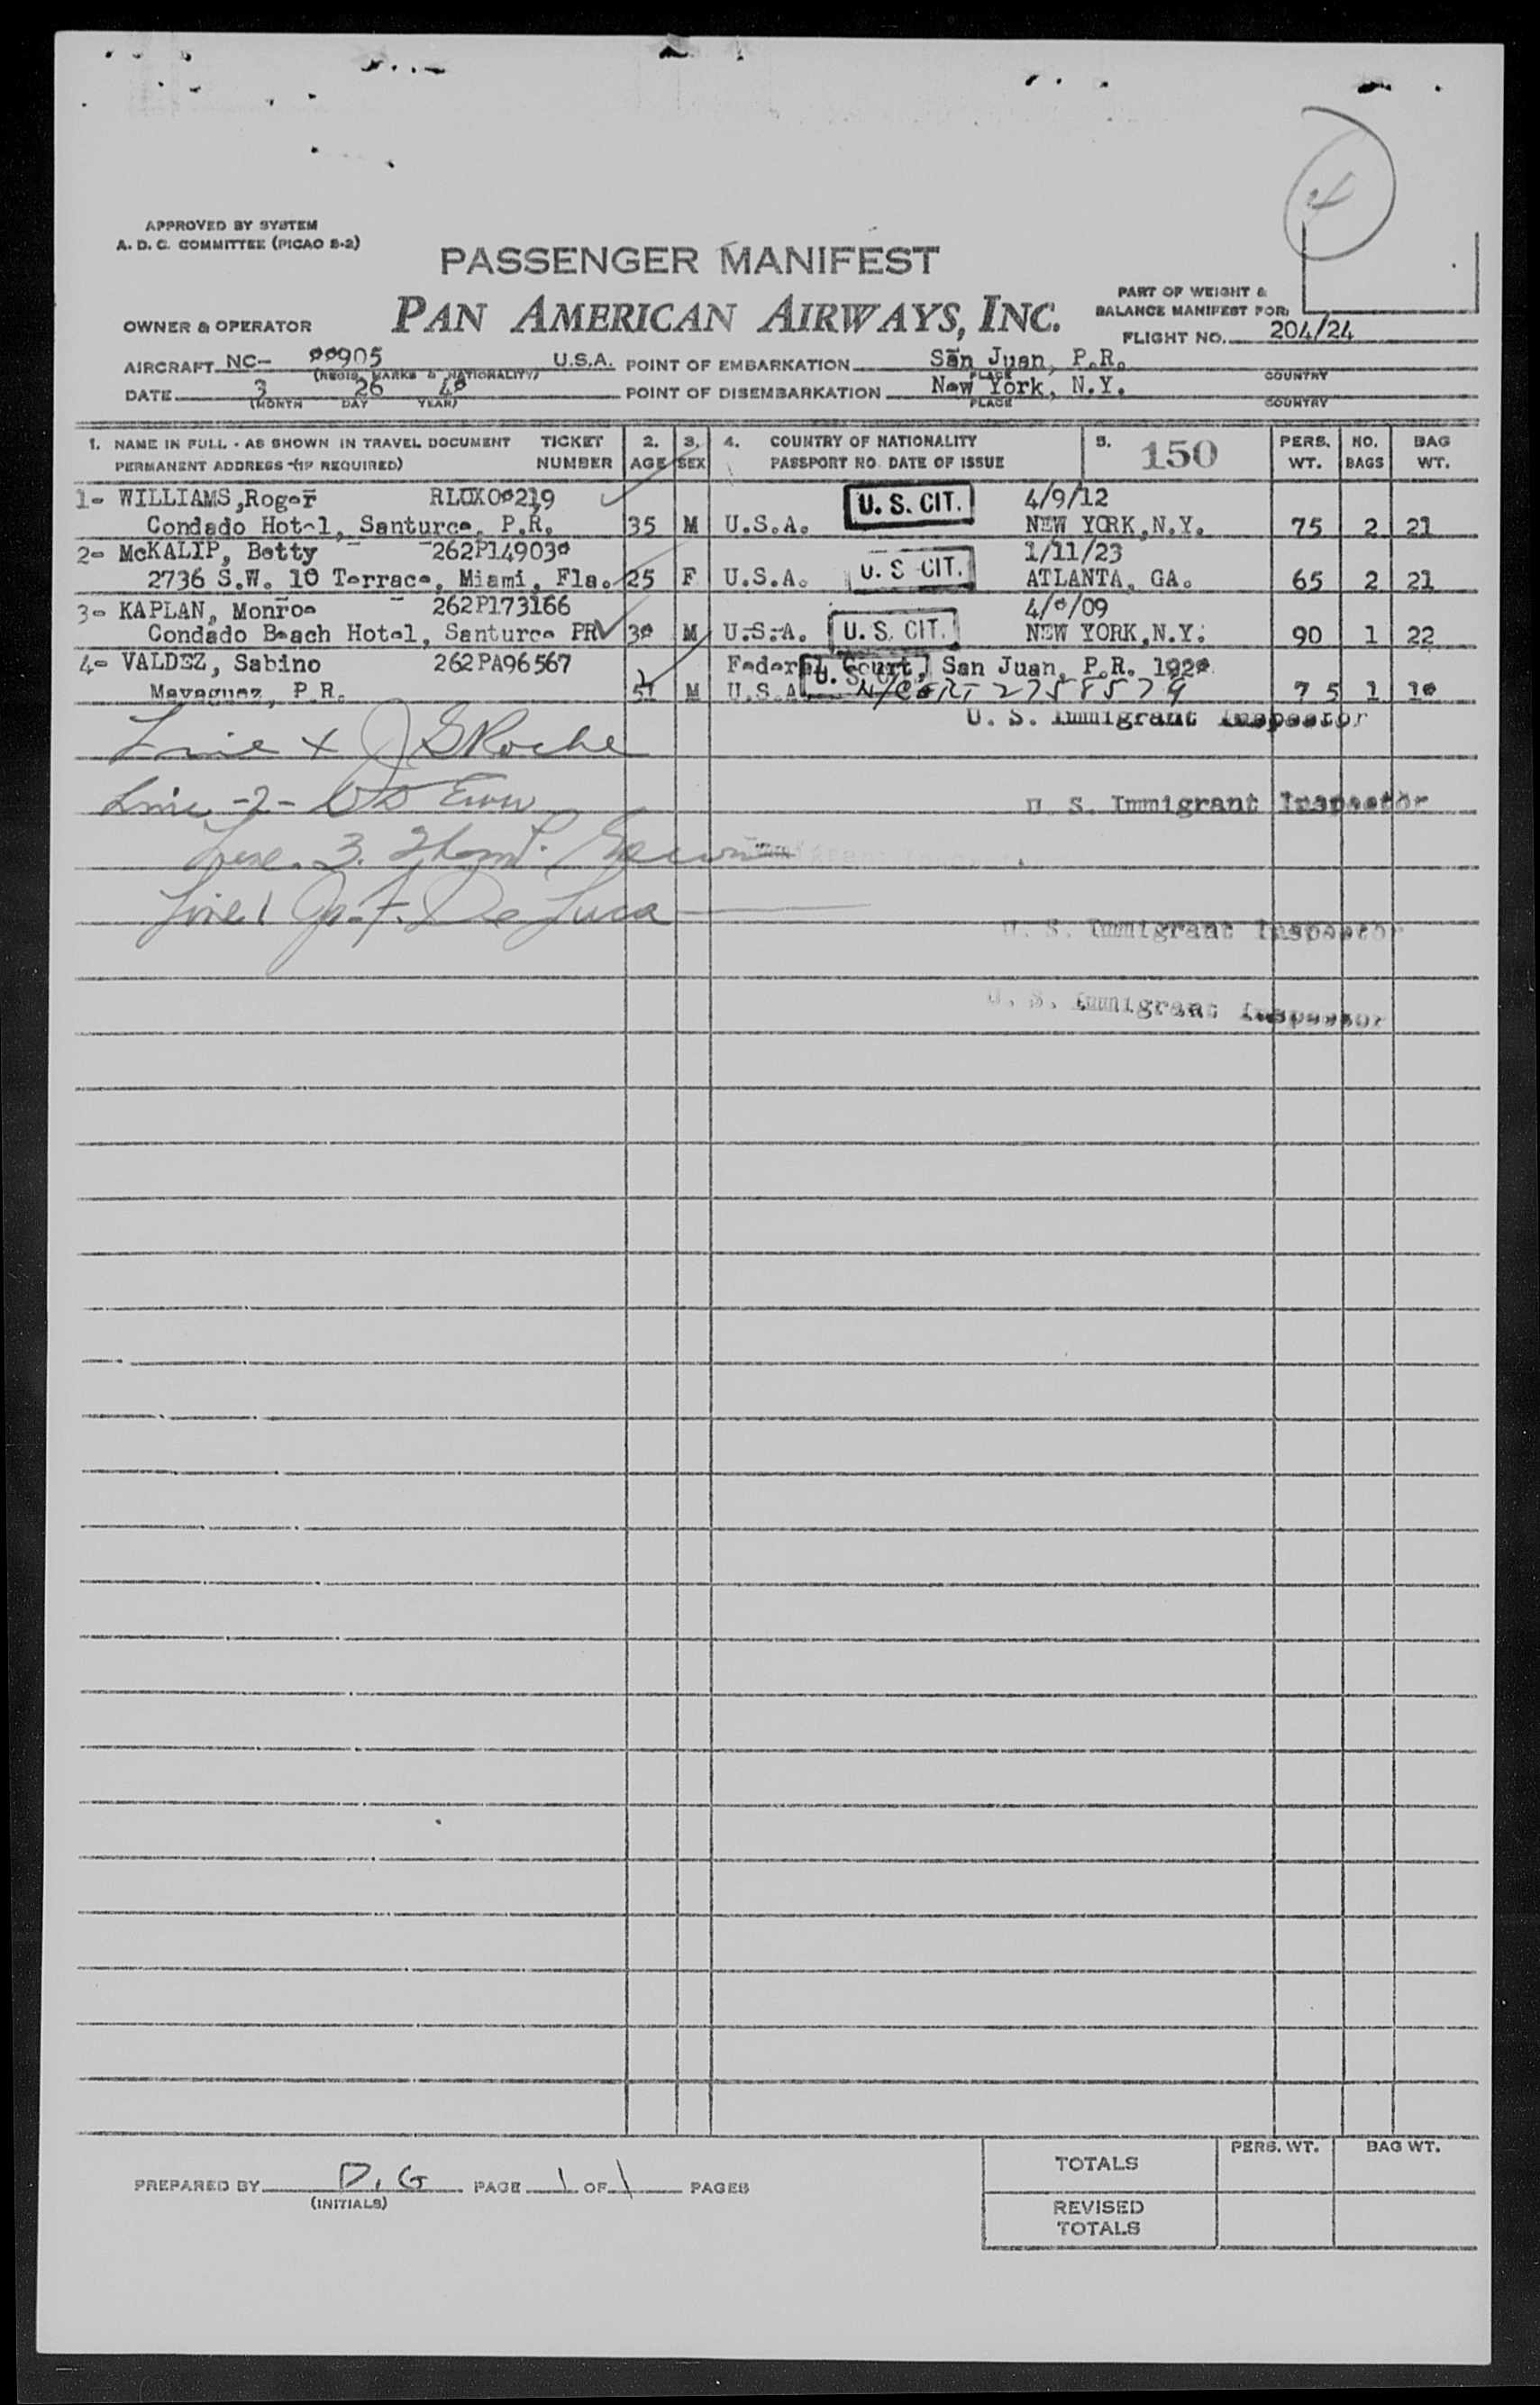 4
APPROVED BY SYSTEM
A. D. C. COMMITTEE (PICAO S-2)
PASSENGER MANIFEST
PAN AMERICAN AIRWAYS, INC.
PART OF WEIGHT &
BALANCE MANIFEST FOR:
OWNER & OPERATOR
FLIGHT NO. 204/24
AIRCRAFT NC- 88905 U.S.A. POINT OF EMBARKATION San Juan, P.R.
(REGIS. MARKS & NATIONALITY) PLACE COUNTRY
DATE 3 26 48 POINT OF DISEMBARKATION New York, N.Y.
(MONTH DAY YEAR) PLACE COUNTRY
1. NAME IN FULL - AS SHOWN IN TRAVEL DOCUMENT TICKET 2. 3. 4. COUNTRY OF NATIONALITY 5. 150 PERS. NO. BAG
PERMANENT ADDRESS (IF REQUIRED) NUMBER AGE SEX PASSPORT NO. DATE OF ISSUE WT. BAGS WT.
1- WILLIAMS,Roger U. S. CIT. 4/9/12
Condado Hotel, Santurce, P.R. 35 M U.S.A. NEW YORK,N.Y. 75 2 21
2- McKALIP, Betty 262P149038 U. S CIT. 1/11/23
2736 S.W. 10 Terrace, Miami, Fla. 25 F U.S.A. ATLANTA, GA. 65 2 21
3- KAPLAN, Monroe 262P173166 U. S. CIT. 4/8/09
Condado Beach Hotel, Santurce PR 38 M U.S.A. NEW YORK,N.Y. 90 1 22
4- VALDEZ, Sabino 262PA96567 Federal Court, San Juan, P.R.
Mayaguez, P.R. 51 M U.S.A. N/CERT 2758579 75 1 18
U. S. Immigrant Inspector
Line J S Roche
Line -2-
U. S. Immigrant Inspector
Line 3.
Line 1 De Luca
U. S. Immigrant Inspector
U. S. Immigrant Inspector
PERS. WT. BAG WT.
TOTALS
PREPARED BY D.G PAGE 1 OF 1 PAGES
(INITIALS)
REVISED
TOTALS